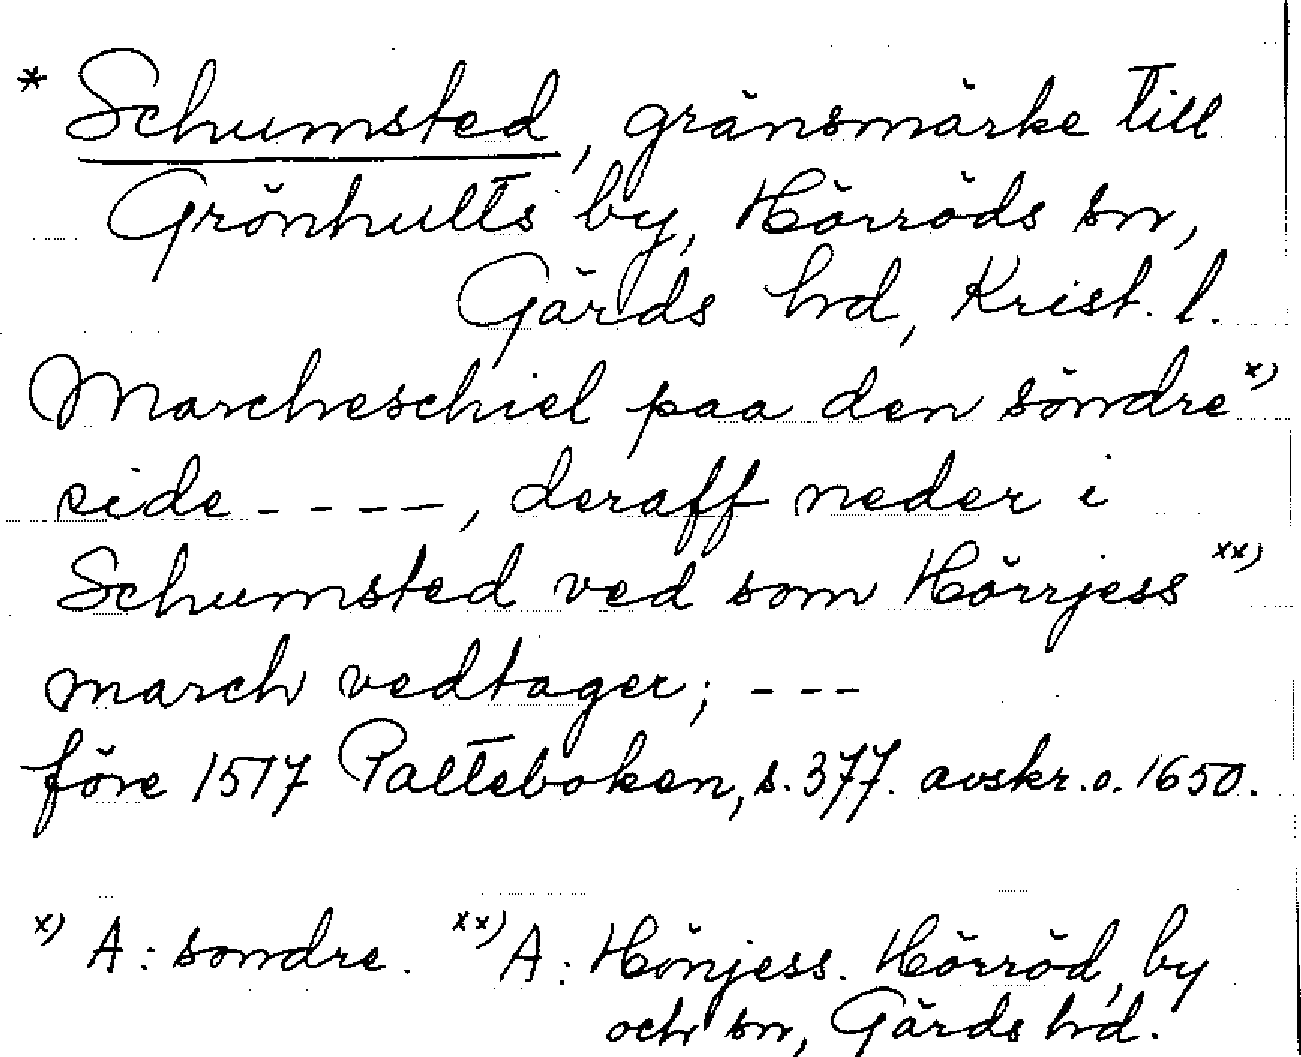 * Schumsted, gränsmärke till
Grönhults by, Hörröds sn,
Gärds hd, Krist. l.
Marcheschiel paa den söndre x)
side - - - -, deraff neder i
Schumsted ved som Hörrjess xx)
march vedtager; - - -
före 1517 Palteboken, s. 377. avskr. o. 1650.
x) A: sondre. xx) A: Hönjess. Hörröd, by
och sn, Gärds hd.